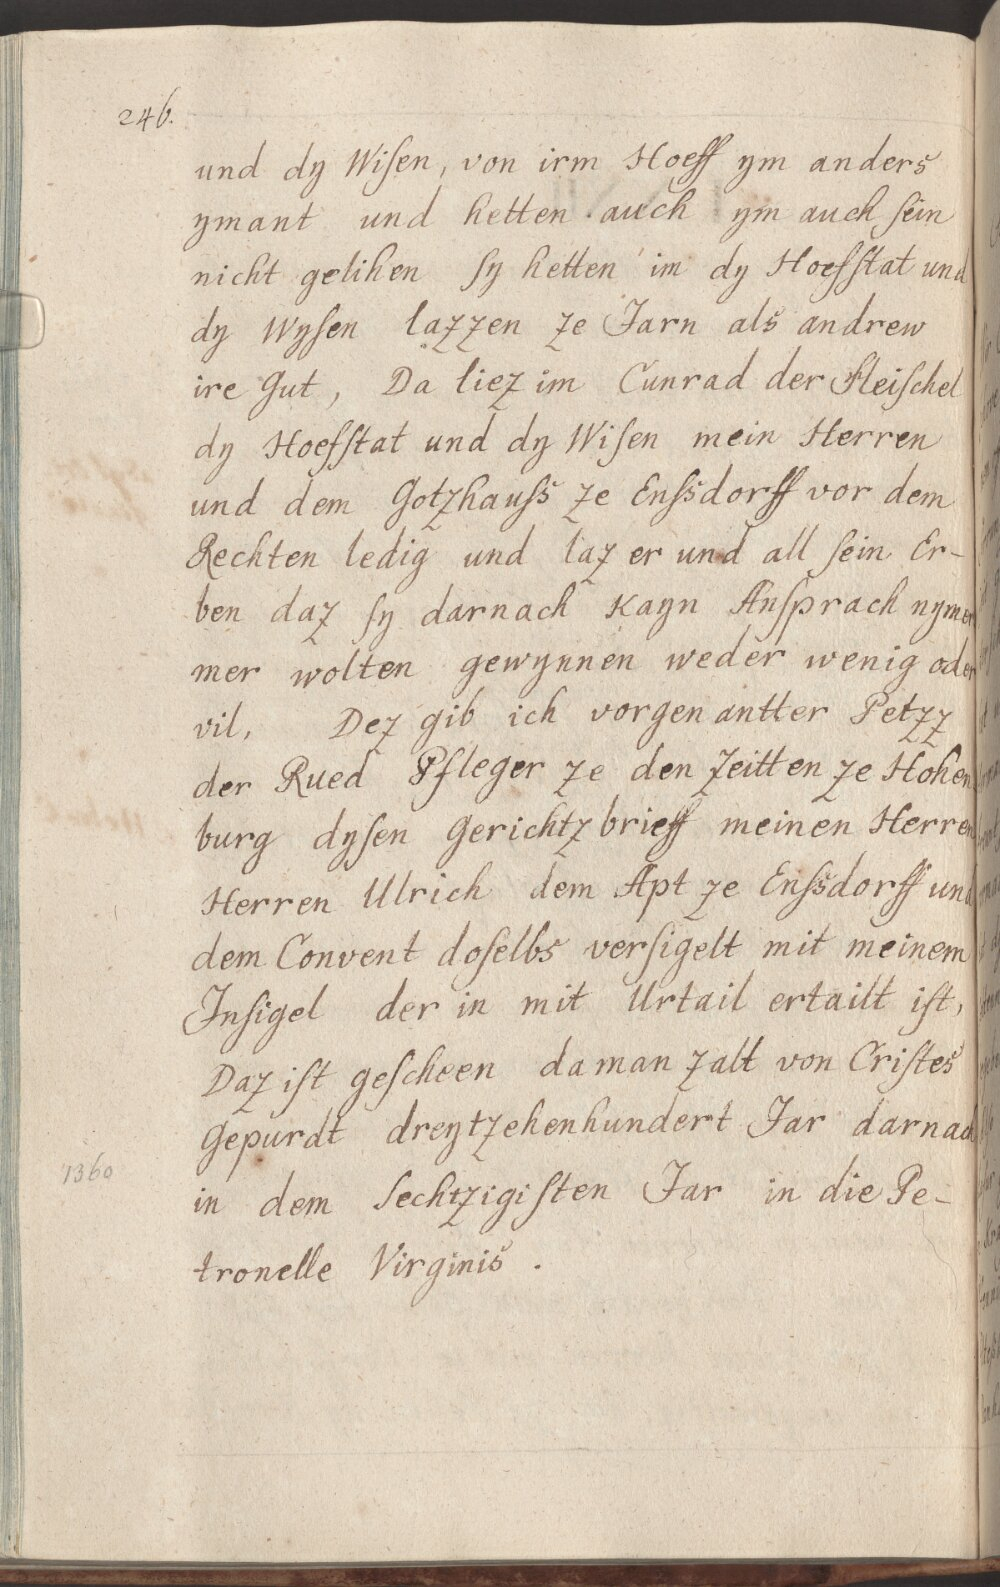 246.
und dy Wiſen, von irm Hoeff ym anders
ymant und hetten auch ym auch ſein
nicht gelihen ſy hetten im dy Hoefſtat und
dy Wyſen lazzen ze Jarn als andrew
ire Gut, Da liez im Cunrad der Fleiſchel
dy Hoefſtat und dy Wiſen mein Herren
und dem Gotzhauſs ze Enſsdorff vor dem
Rechten ledig und laz er und all ſein Er-
ben daz ſy darnach kayn Anſprach nymer
mer wolten gewynnen weder wenig oder
vil, Dez gib ich vorgenantter Petzz
der Rued Pfleger ze den Zeitten ze Hohen
burg dyſen Gerichtz brieff meinen Herren
Herren Ulrich dem Apt ze Enſsdorff und
dem Convent doſelbs verſigelt mit meinem
Inſigel der in mit Urtail ertailt iſt,
Daz iſt geſcheen da man zalt von Criſtes
Gepurdt dreytzehenhundert Jar darnach
1360
in dem Sechtzigiſten Jar in die Pe-
tronelle Virginis.